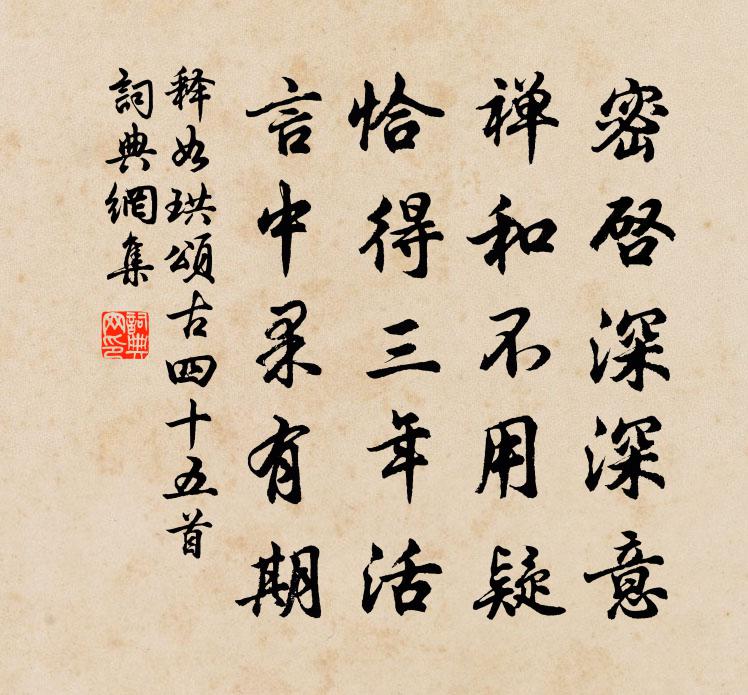 密啓深深意
禅和不用疑
恰得三年活
言中果有期
释如珙頌古四十五首
詞典網集
詞典网印